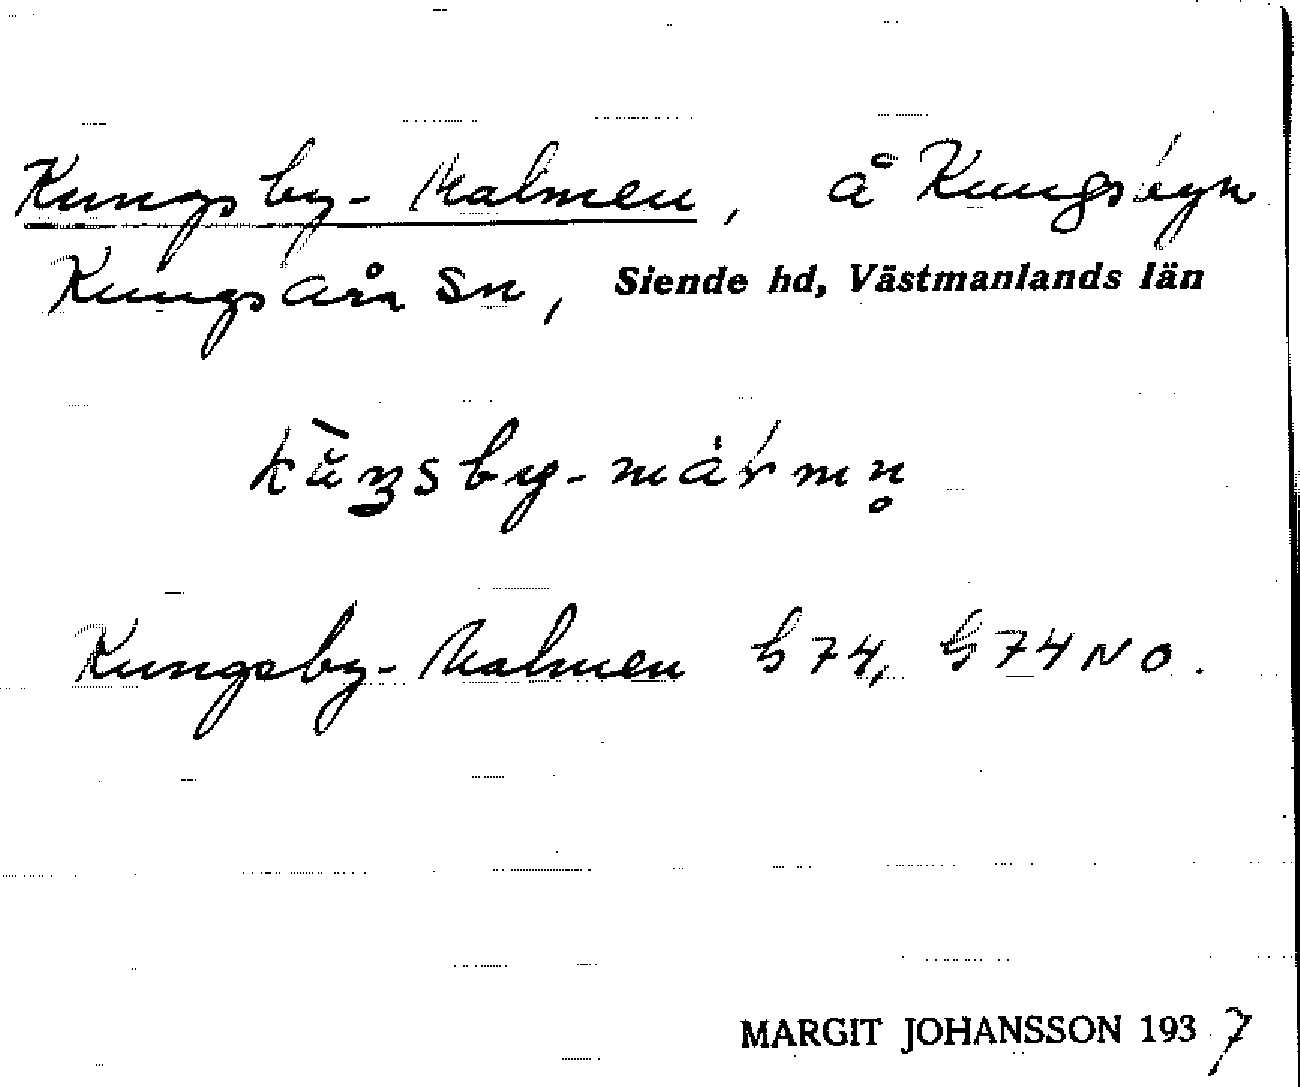 Kungsby-Malmen, å Kungsbyn
Kungsåra sn, Siende hd, Västmanlands län
Kungsby-Malmen G 74, G 74 NO.
MARGIT JOHANSSON 1937